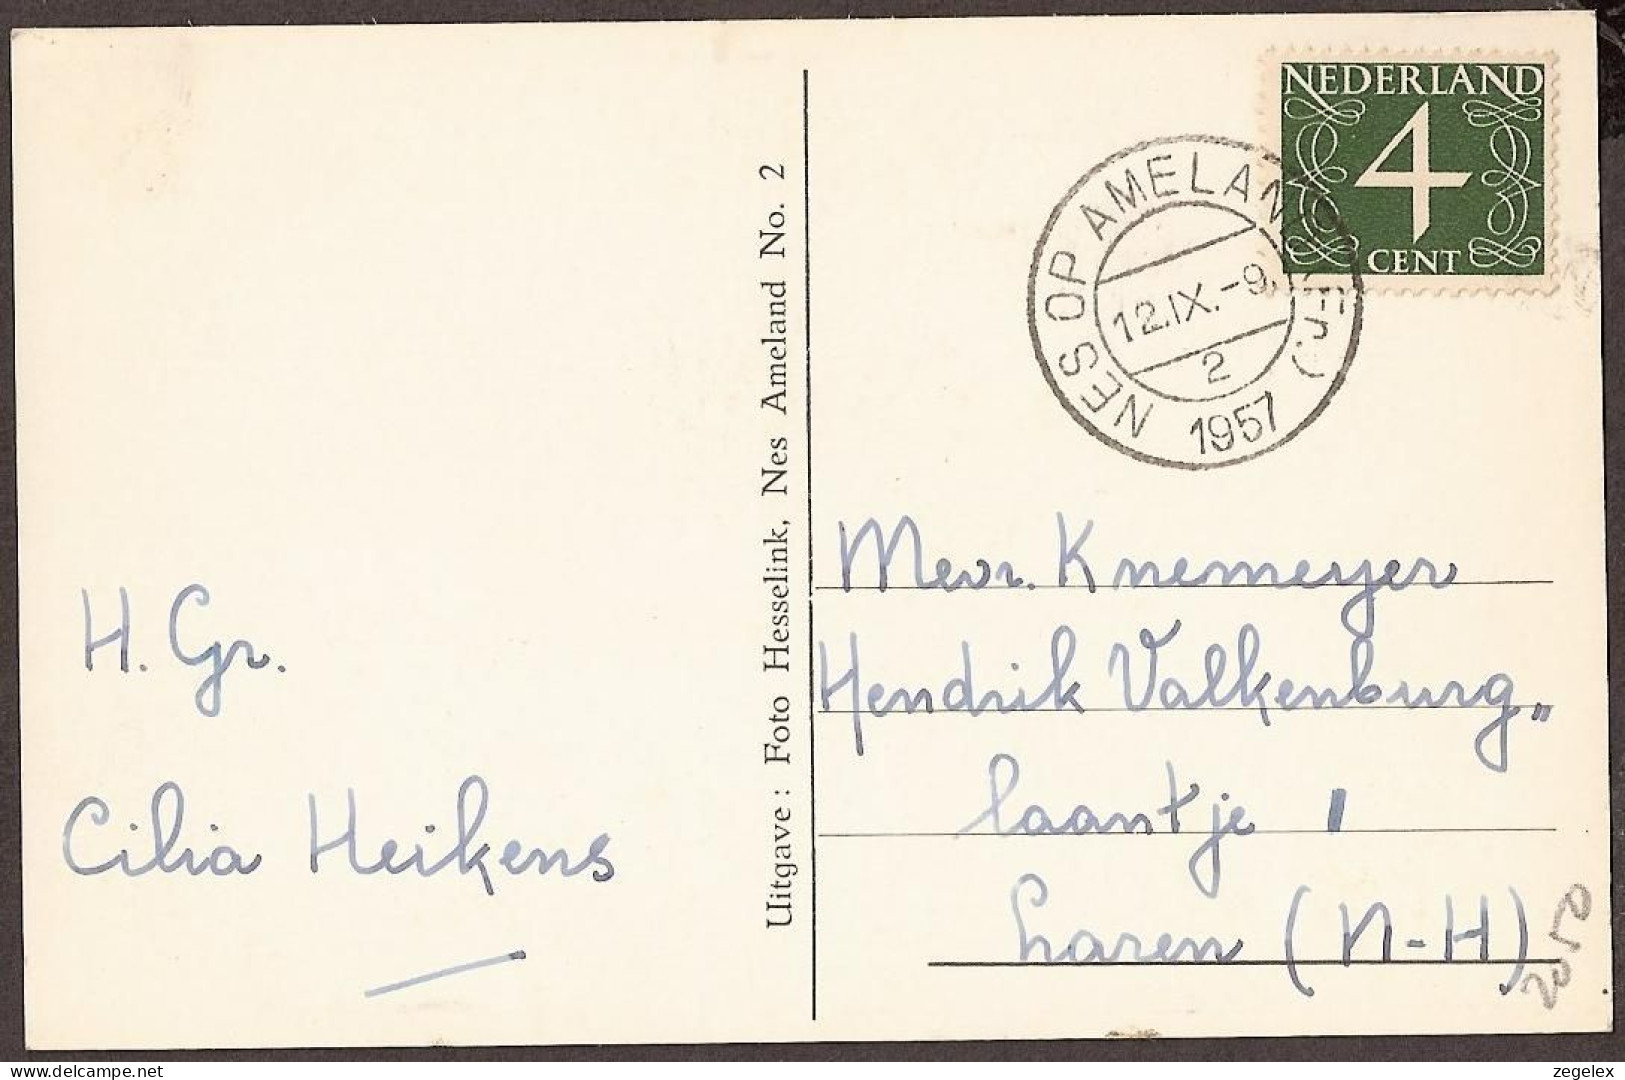 NEDERLAND
4
CENT
NES OP AMELAND (Fr.)
12.IX.-9.
2
1957
Uitgave : Foto Hesselink, Nes Ameland No. 2
H. Gr.
Cilia Heikens
Mevr. Knemeyer
Hendrik Valkenburg„
laantje 1
Laren (N-H)
2050
www.delcampe.net
zegelex